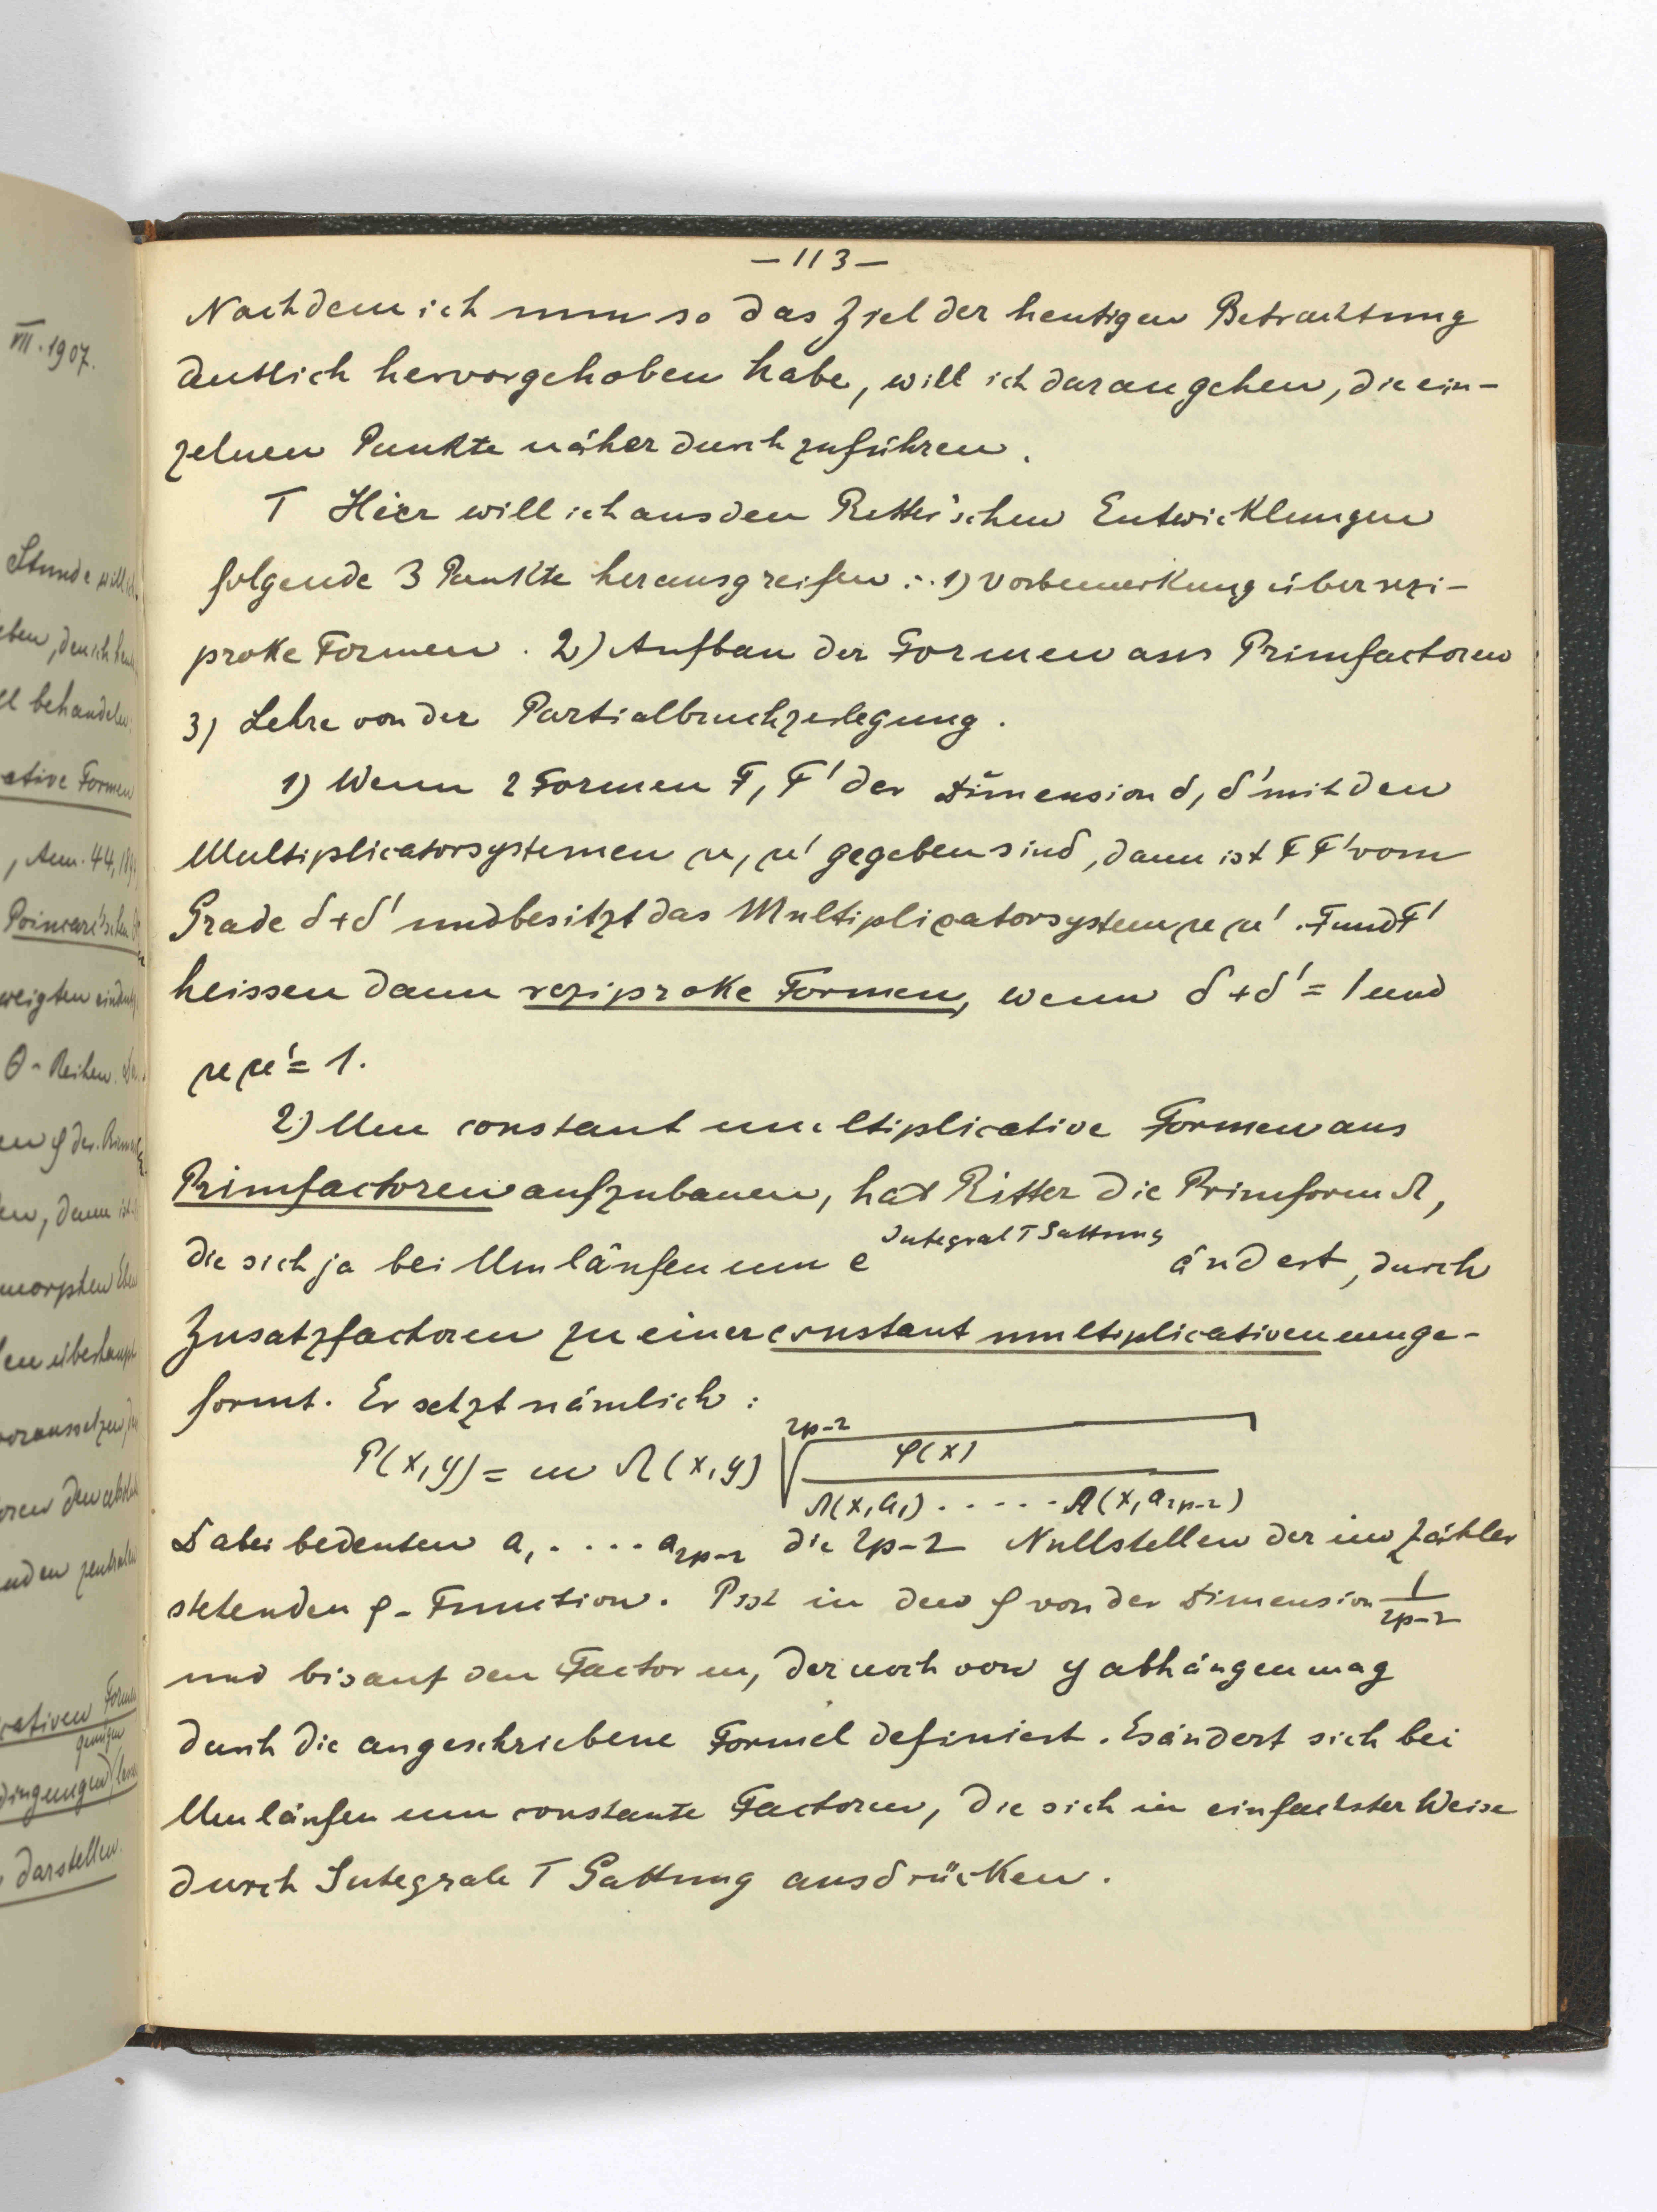 VII. 1907.
Stunde will ich
eben, den ich heu
ll behandeln.
ative Formen
, Ann. 44, 189
Poincaré'schen
weigten eindeu
Θ-Reihen.
en, dann ist
morphen Eben
len überhaupt
voraussetzen,
nden zentralen
cativen Formen
genügen
dingungen lassen
darstellen.
— 113 —
Nachdem ich nun so das Ziel der heutigen Betrachtung
deutlich hervorgehoben habe, will ich daran gehen, die ein-
zelnen Punkte näher durchzuführen.
I Hier will ich aus den Ritter'schen Entwicklungen
folgende 3 Punkte herausgreifen: 1) Vorbemerkung über rezi-
proke Formen. 2) Aufbau der Formen aus Primfactoren
3) Lehre von der Partialbruchzerlegung.
1) Wenn 2 Formen F, F' der Dimension δ, δ' mit den
Multiplicatorsystemen μ, μ' gegeben sind, dann ist F F' vom
Grade δ+δ' und besitzt das Multiplicatorsystem μ μ'. F und F'
heissen dann reziproke Formen, wenn δ+δ' = 1 und
μ μ' = 1.
2) Um constant multiplicative Formen aus
Primfactoren aufzubauen, hat Ritter die Primform Ω,
die sich ja bei Umläufen um e^{Integral I Gattung} ändert, durch
Zusatzfactoren zu einer constant multiplicativen umge-
formt. Er setzt nämlich:
P(x,y) = m Ω(x,y) \sqrt[2p-2]{\frac{φ(x)}{Ω(x,a_1) ..... Ω(x,a_{2p-2})}}
Dabei bedeuten a_1 .... a_{2p-2} die 2p-2 Nullstellen der im Zähler
stehenden φ-Function. P ist in den φ von der Dimension \frac{1}{2p-2}
und bis auf den Factor m, der noch von y abhängen mag
durch die angeschriebene Formel definiert. Es ändert sich bei
Umläufen um constante Factoren, die sich in einfachster Weise
durch Integrale I Gattung ausdrücken.